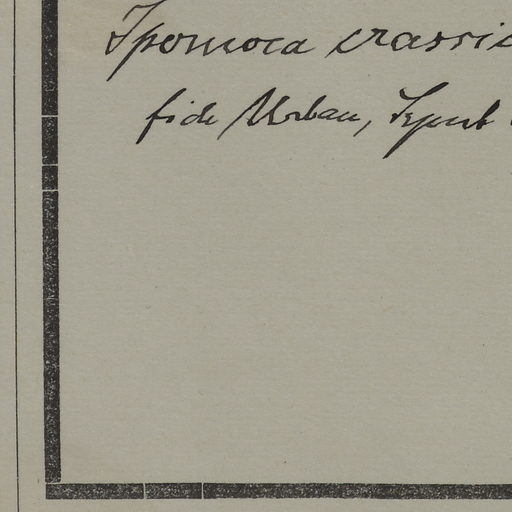 Ipomoea crassic
fide Urban, Symb